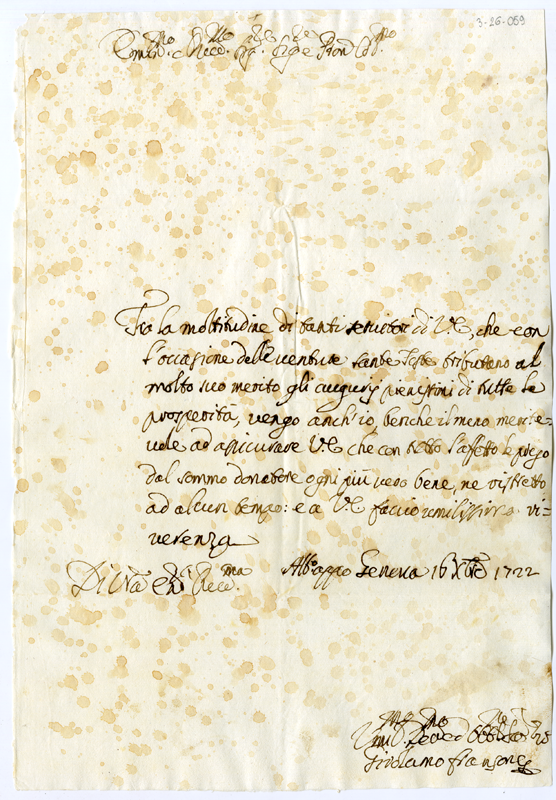 3-26-059
Em.mo e Rev.mo Sig. Sig.e Pron Col.mo
Fra la moltitudine di tanti servitori di V.E., che con
l'occasione delle venture sante feste tributano al
molto suo merito gli augurÿ pienissimi di tutte le
prosperità, vengo anch'io, benche il meno merite=
vole ad assicurare V.E. che con tutto l'affetto le prego
dal sommo donatore ogni più vero bene, ne ristretto
ad alcun tempo: e a V.E. faccio umilissima ri=
verenza
Di Vra Em. Rev.ma
Genova 16 Xbre 1722
Umil.mo Dev.mo Obb.
Girolamo Fransone